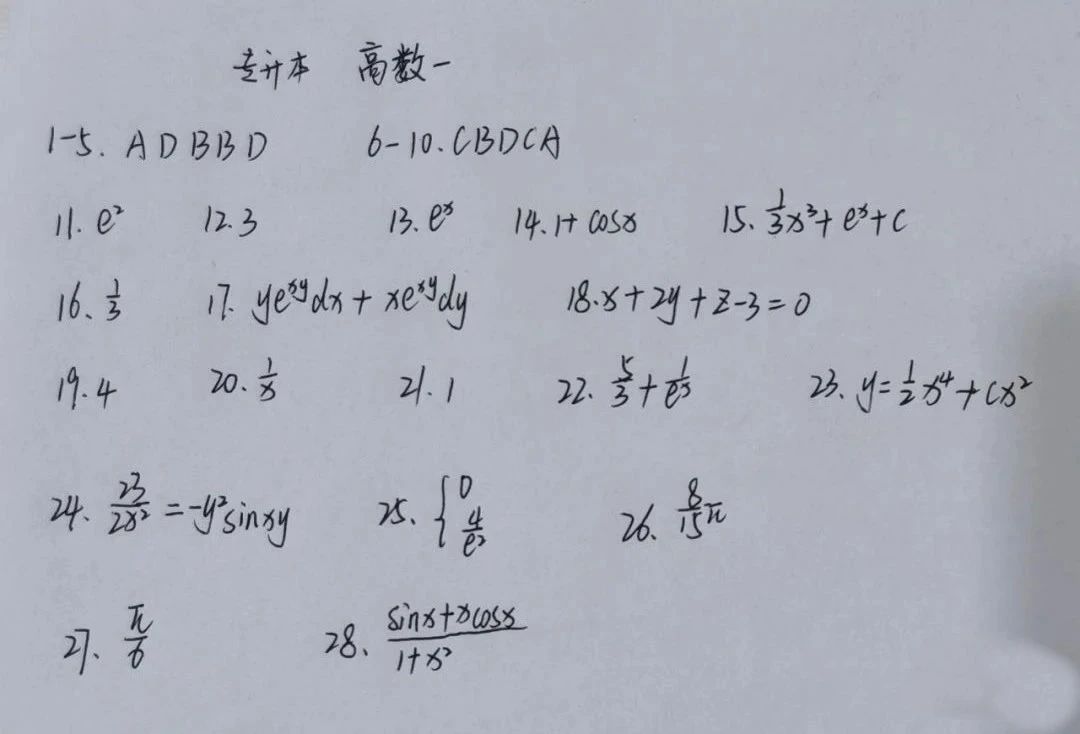 专升本 高数一
1-5. ADBBD 6-10. CBDCA
11. e² 12. 3 13. eˣ 14. 1+cosx 15. 1/3x³+eˣ+C
16、1/3 17. ye^{xy}dx+xe^{xy}dy 18. x+2y+z-3=0
19. 4 20. 1/x 21. 1 22. 5/3+1/e³ 23、y=1/2x⁴+Cx²
24、23/2x²=-y²sinxy 25、{0 4/e² 26、8/15π
27、π/6 28、(sinx+xcosx)/(1+x²)